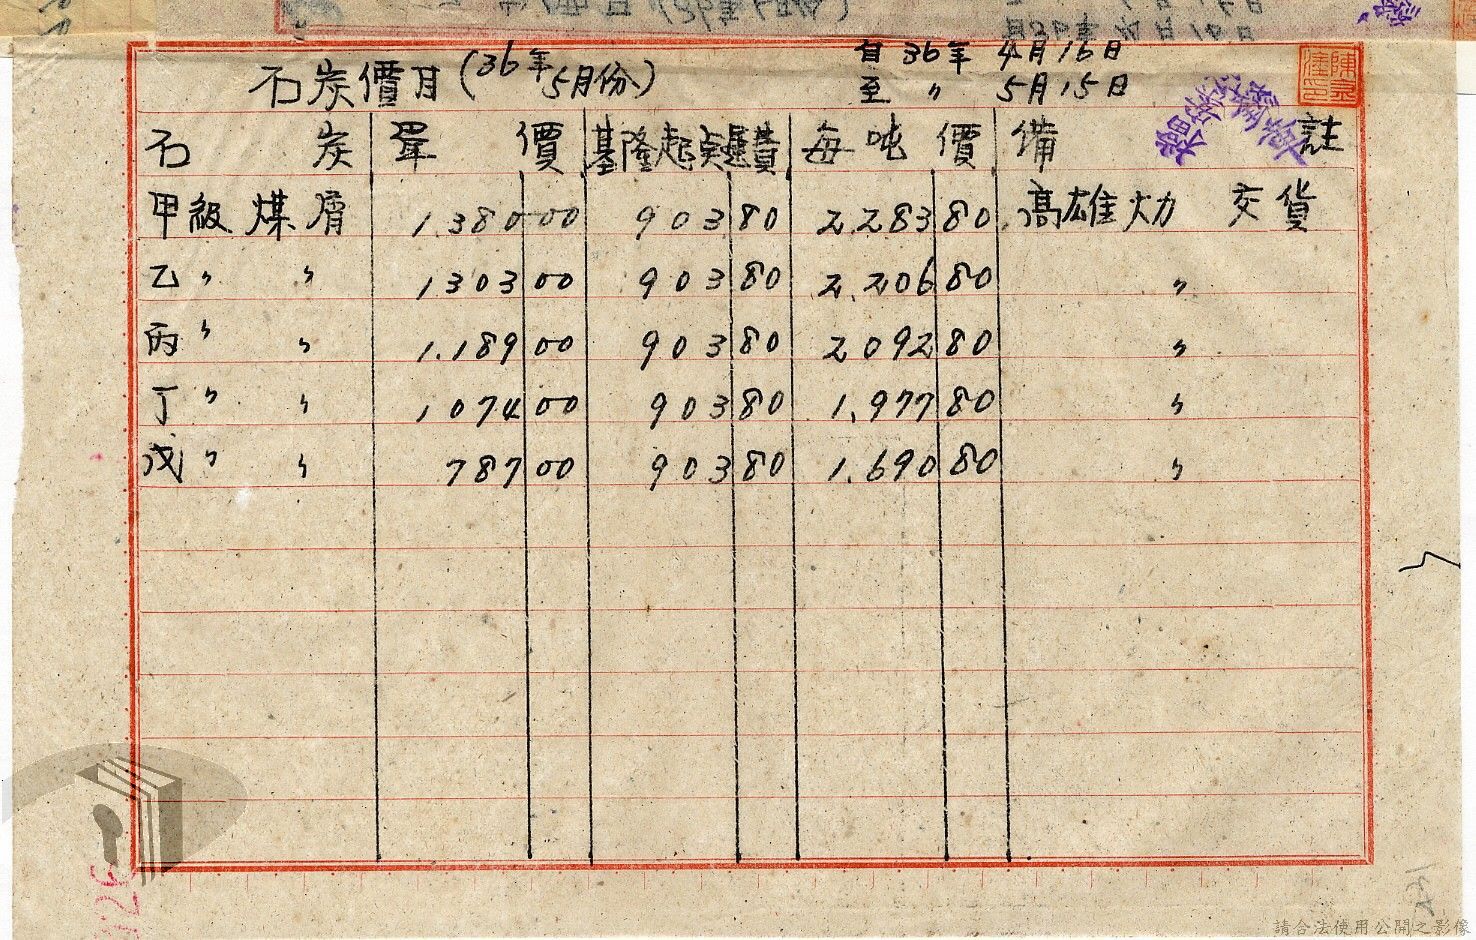 石炭價目(36年5月份)
自36年 4月16日
至 〃 5月15日
石炭 單價 基隆起点運費 每吨價 備註
甲級煤屑 1.380 00 903 80 2.283 80 高雄 交貨
乙〃 〃 1303 00 903 80 2.206 80 〃
丙〃 〃 1.189 00 903 80 2092 80 〃
丁〃 〃 1074 00 903 80 1.977 80 〃
戊〃 〃 787 00 903 80 1.690 80 〃
請合法使用公開之影像